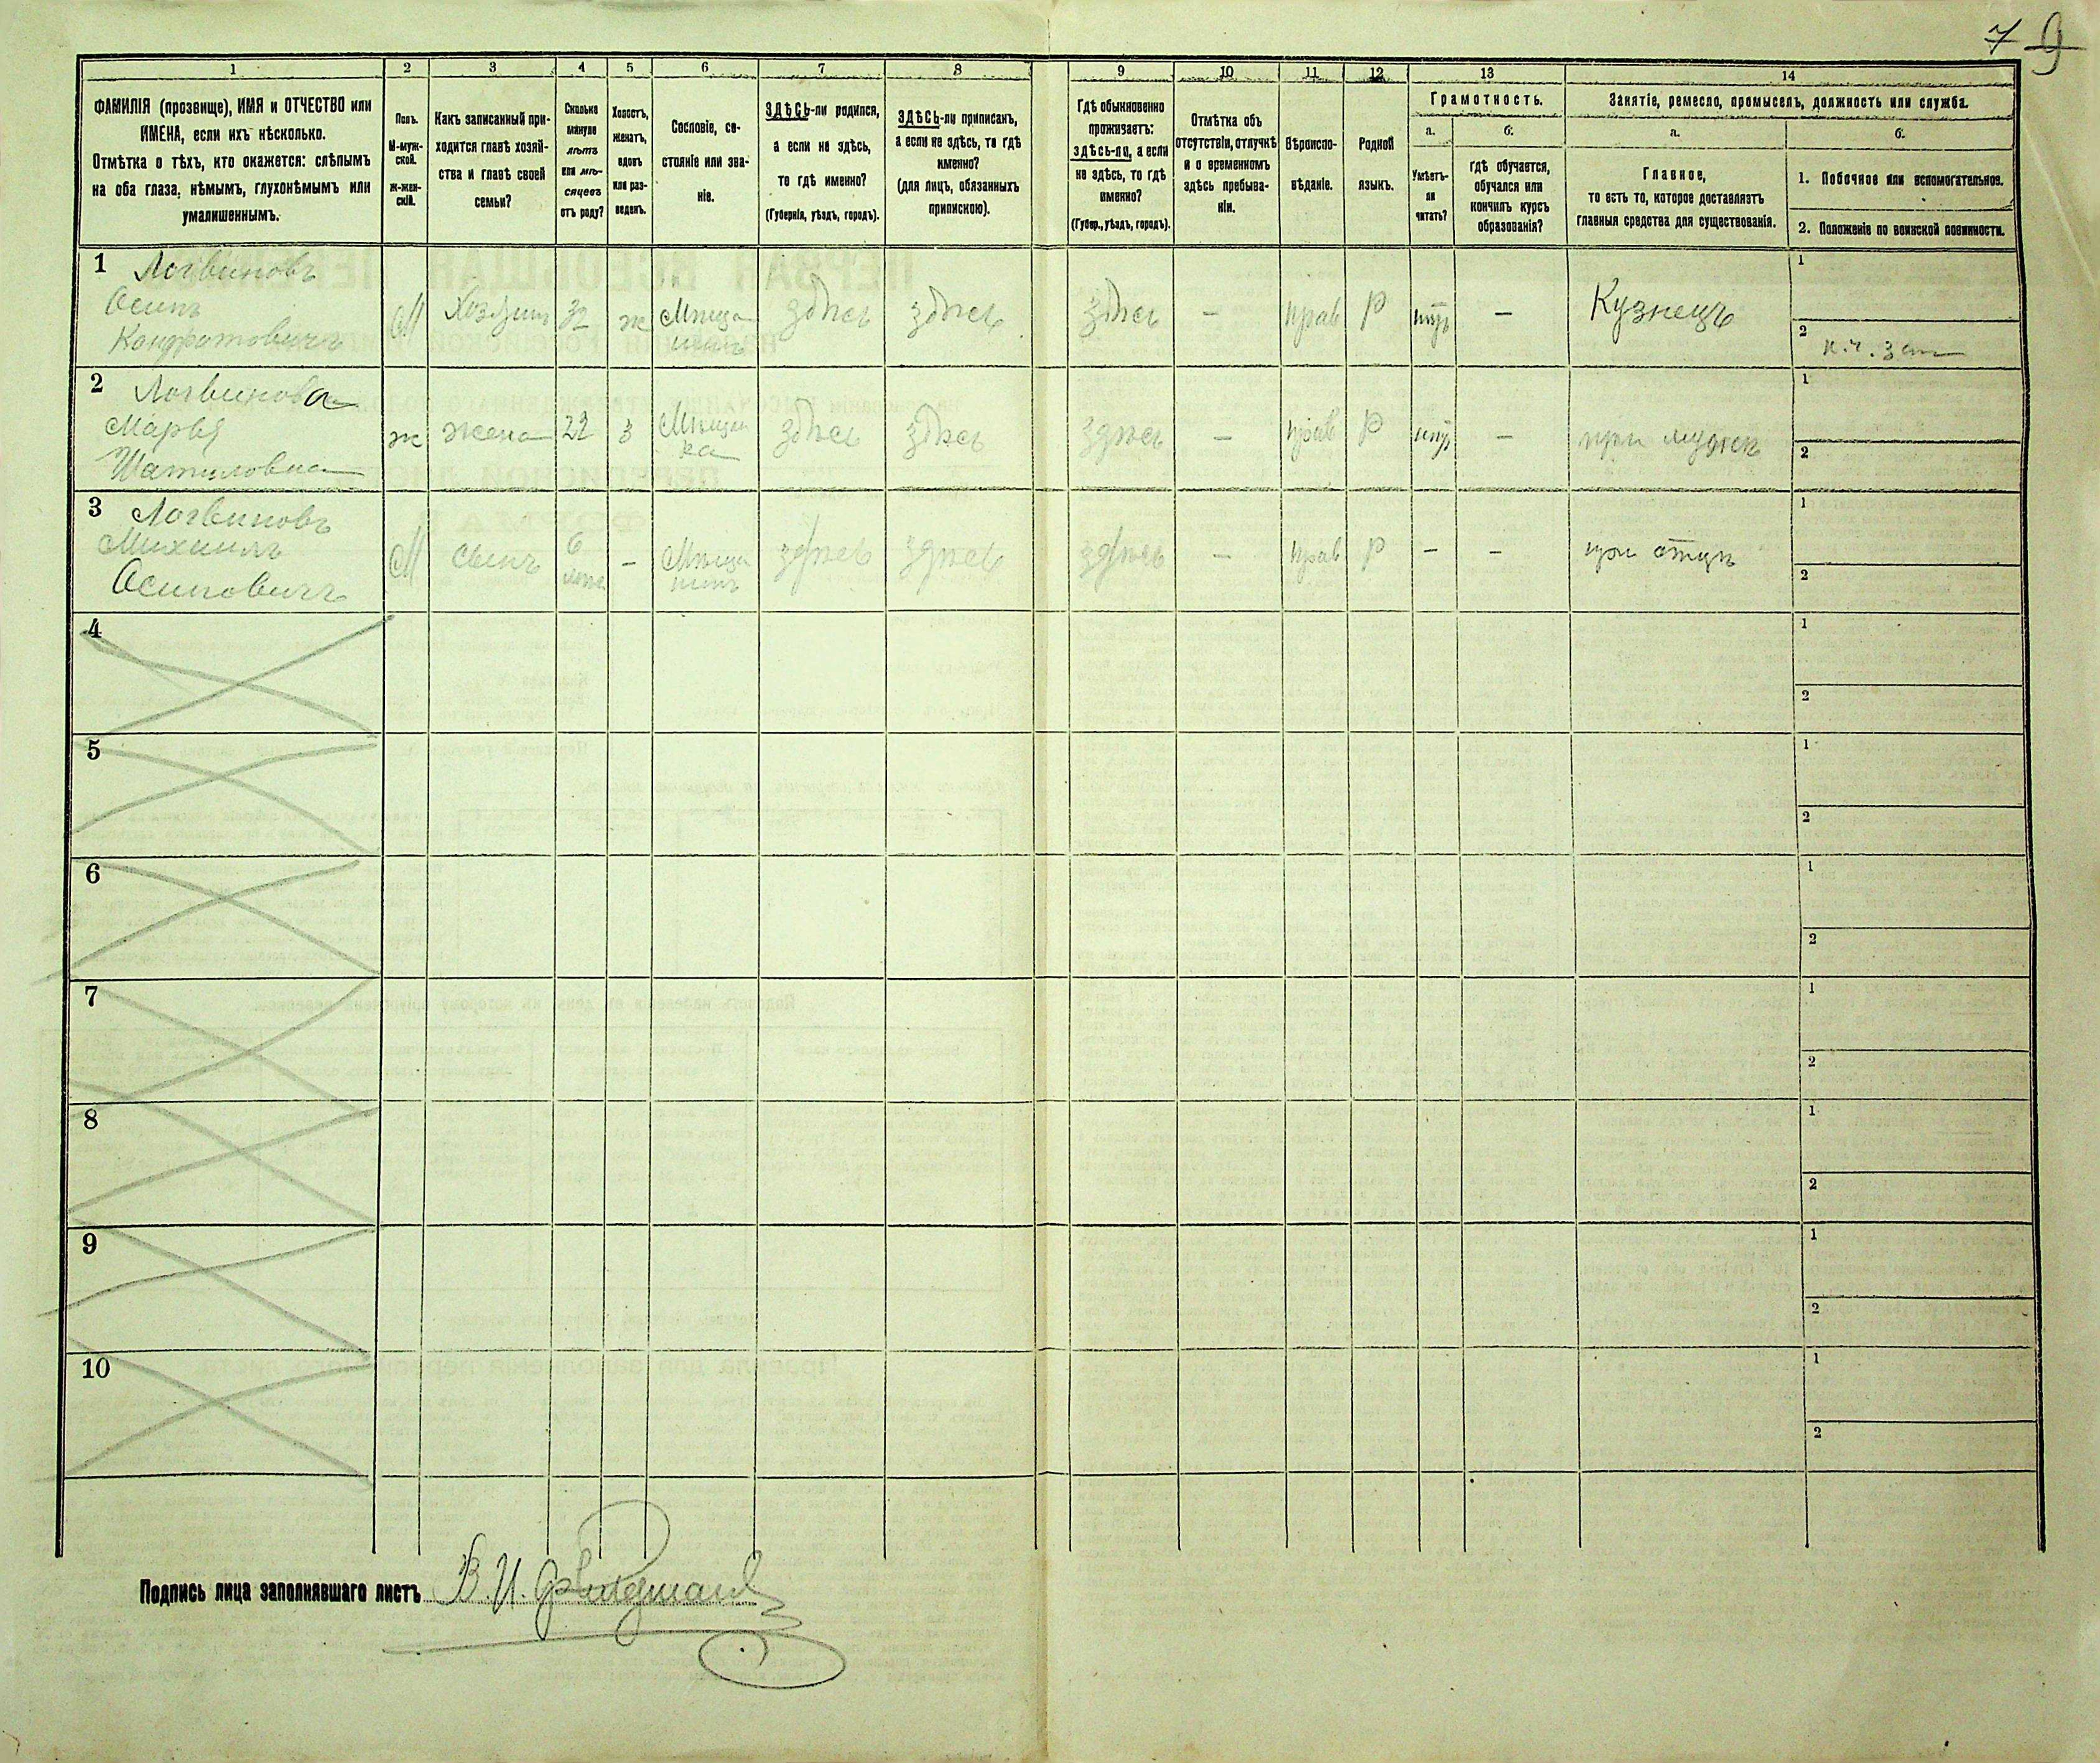 7 9
1 2 3 4 5 6 7 8 9 10 11 12 13 14
ФАМИЛІЯ (прозвище), ИМЯ и ОТЧЕСТВО или
ИМЕНА, если ихъ нѣсколько.
Отмѣтка о тѣхъ, кто окажется: слѣпымъ
на оба глаза, нѣмымъ, глухонѣмымъ или
умалишеннымъ.
Полъ.
М-муж-
ской.
Ж-жен-
скій.
Какъ записанный при-
ходится главѣ хозяй-
ства и главѣ своей
семьи?
Сколько
минуло
лѣтъ
или мѣ-
сяцевъ
отъ роду?
Холостъ,
женатъ,
вдовъ
или раз-
веденъ.
Сословіе, со-
стояніе или зва-
ніе.
ЗДѢСЬ-ли родился,
а если не здѣсь,
то гдѣ именно?
(Губернія, уѣздъ, городъ).
ЗДѢСЬ-ли приписанъ,
а если не здѣсь, то гдѣ
именно?
(для лицъ, обязанныхъ
припискою).
Гдѣ обыкновенно
проживаетъ:
здѣсь-ли, а если
не здѣсь, то гдѣ
именно?
(Губер., уѣздъ, городъ).
Отмѣтка объ
отсутствіи, отлучкѣ
и о временномъ
здѣсь пребыва-
ніи.
Вѣроиспо-
вѣданіе.
Родной
языкъ.
Грамотность.
а.
Умѣетъ-
ли
читать?
б.
гдѣ обучается,
обучался или
кончилъ курсъ
образованія?
Занятіе, ремесло, промыселъ, должность или служба.
а.
Главное,
то есть то, которое доставляетъ
главныя средства для существованія.
б.
1. Побочное или вспомогательное.
2. Положеніе по воинской повинности.
1 Логвиновъ
Осипъ
Кондратовичъ
М Хозяинъ 32 ж Мѣща
нинъ
здѣсь здѣсь здѣсь — прав Р — Кузнецъ
1
2
2 Логвинова
Марья
ж жена 22 З Мѣщан
ка
здѣсь здѣсь здѣсь — прав Р — при мужѣ
1
2
3 Логвиновъ
Михаилъ
Осиповичъ
М сынъ 6
лѣтъ
— Мѣща
нинъ
здѣсь здѣсь здѣсь — прав Р — — при отцѣ
1
2
4
1
2
5
1
2
6
1
2
7
1
2
8
1
2
9
1
2
10
1
2
Подпись лица заполнявшаго листъ В. И.